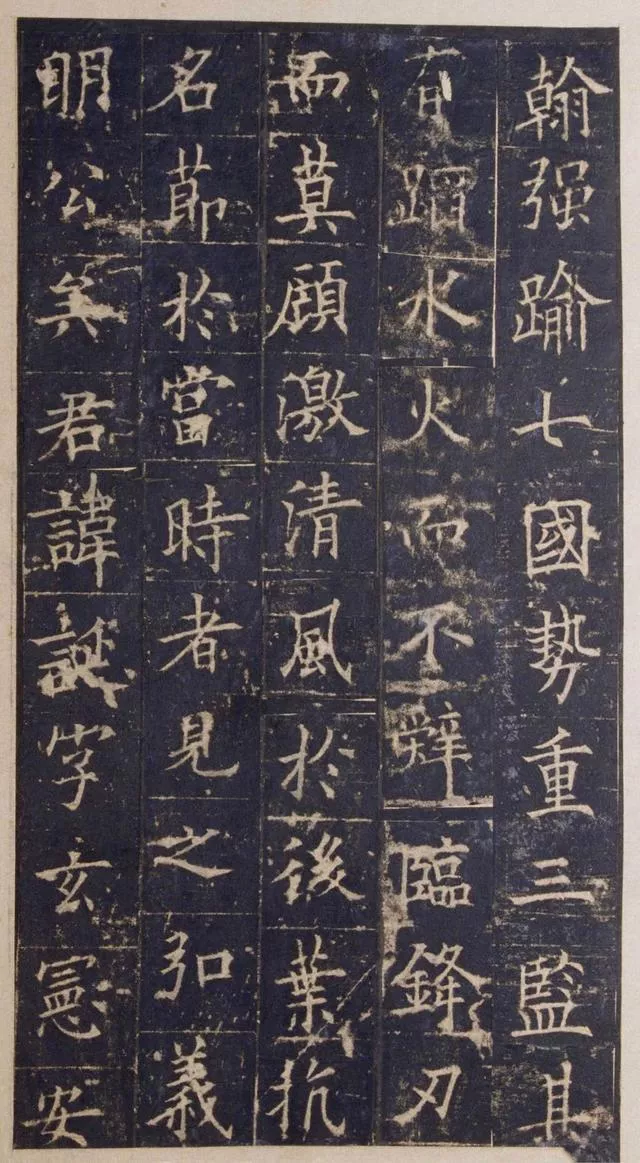 翰强踰七國勢重三監其
有蹈水火而不辭臨鋒刃
而莫顧激清風於後葉抗
名莭於當時者見之弘義
明公矣君諱誕字玄憲安